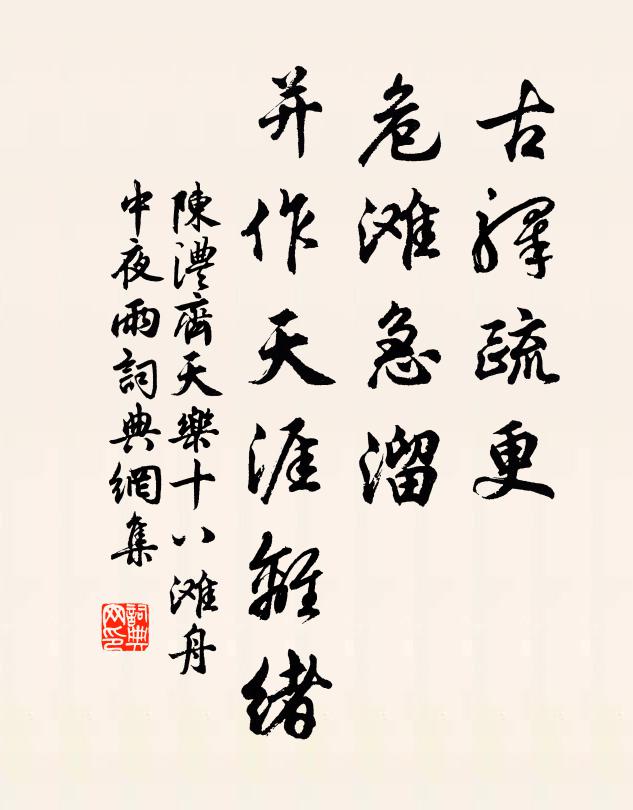 古驛疏更
危滩急溜
并作天涯離緒
陳澧齊天樂十八滩舟
中夜雨詞典網集
詞典网印